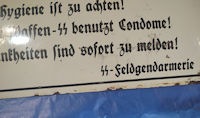 Hygiene ist zu achten!
daffen-SS benutzt Condome!
nkheiten sind sofort zu melden!
SS-Feldgendarmerie